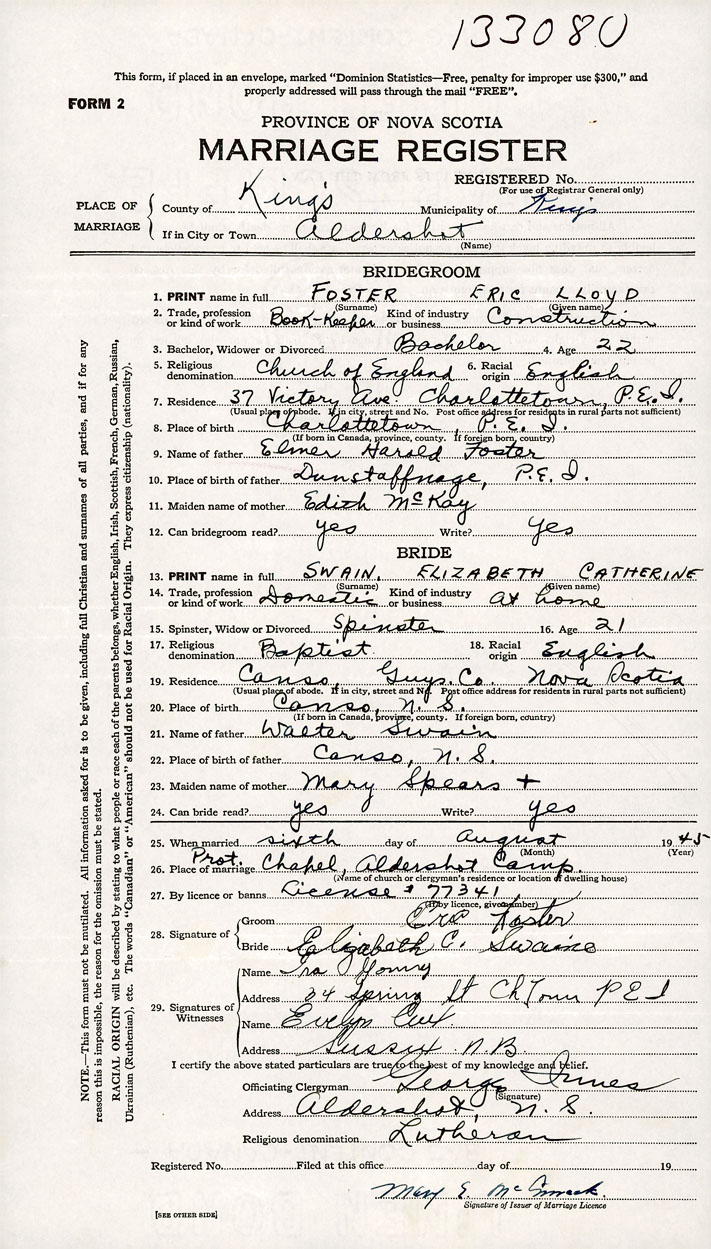 133080
This form, if placed in an envelope, marked "Dominion Statistics—Free, penalty for improper use $300," and
properly addressed will pass through the mail "FREE".
FORM 2
PROVINCE OF NOVA SCOTIA
MARRIAGE REGISTER
REGISTERED No.
(For use of Registrar General only)
PLACE OF MARRIAGE
County of King's Municipality of Kings
If in City or Town Aldershot
(Name)
BRIDEGROOM
1. PRINT name in full FOSTER ERIC LLOYD
(Surname) (Given name)
2. Trade, profession or kind of work Book-Keeper Kind of industry or business Construction
3. Bachelor, Widower or Divorced Bachelor 4. Age 22
5. Religious denomination Church of England 6. Racial origin English
7. Residence 37 Victory Ave. Charlottetown, P.E.I.
(Usual place of abode. If in city, street and No. Post office address for residents in rural parts not sufficient)
8. Place of birth Charlottetown, P.E.I.
(If born in Canada, province, county. If foreign born, country)
9. Name of father Elmer Harold Foster
10. Place of birth of father Dunstaffnage, P.E.I.
11. Maiden name of mother Edith McKay
12. Can bridegroom read? yes Write? yes
BRIDE
13. PRINT name in full SWAIN, ELIZABETH CATHERINE
(Surname) (Given name)
14. Trade, profession or kind of work Domestic Kind of industry or business at home
15. Spinster, Widow or Divorced Spinster 16. Age 21
17. Religious denomination Baptist 18. Racial origin English
19. Residence Canso, Guys. Co. Nova Scotia
(Usual place of abode. If in city, street and No. Post office address for residents in rural parts not sufficient)
20. Place of birth Canso, N.S.
(If born in Canada, province, county. If foreign born, country)
21. Name of father Walter Swain
22. Place of birth of father Canso, N.S.
23. Maiden name of mother Mary Spears +
24. Can bride read? yes Write? yes
25. When married sixth day of August 1945
(Month) (Year)
26. Place of marriage Prot. Chapel, Aldershot Camp.
(Name of church or clergyman's residence or location of dwelling house)
27. By licence or banns License # 77341
(If by licence, give number)
28. Signature of
Groom Eric Foster
Bride Elizabeth C. Swaine
29. Signatures of Witnesses
Name Ira
Address 34 Spring St ChTown P E I
Name Evelyn
Address Sussex N.B
I certify the above stated particulars are true to the best of my knowledge and belief.
Officiating Clergyman George Innes
(Signature)
Address Aldershot, N.S.
Religious denomination Lutheran
Registered No. Filed at this office day of 19
Mary E.
Signature of Issuer of Marriage Licence
[SEE OTHER SIDE]
NOTE.—This form must not be mutilated. All information asked for is to be given, including full Christian and surnames of all parties, and if for any
reason this is impossible, the reason for the omission must be stated.
RACIAL ORIGIN will be described by stating to what people or race each of the parents belongs, whether English, Irish, Scottish, French, German, Russian,
Ukrainian (Ruthenian), etc. The words "Canadian" or "American" should not be used for Racial Origin. They express citizenship (nationality).